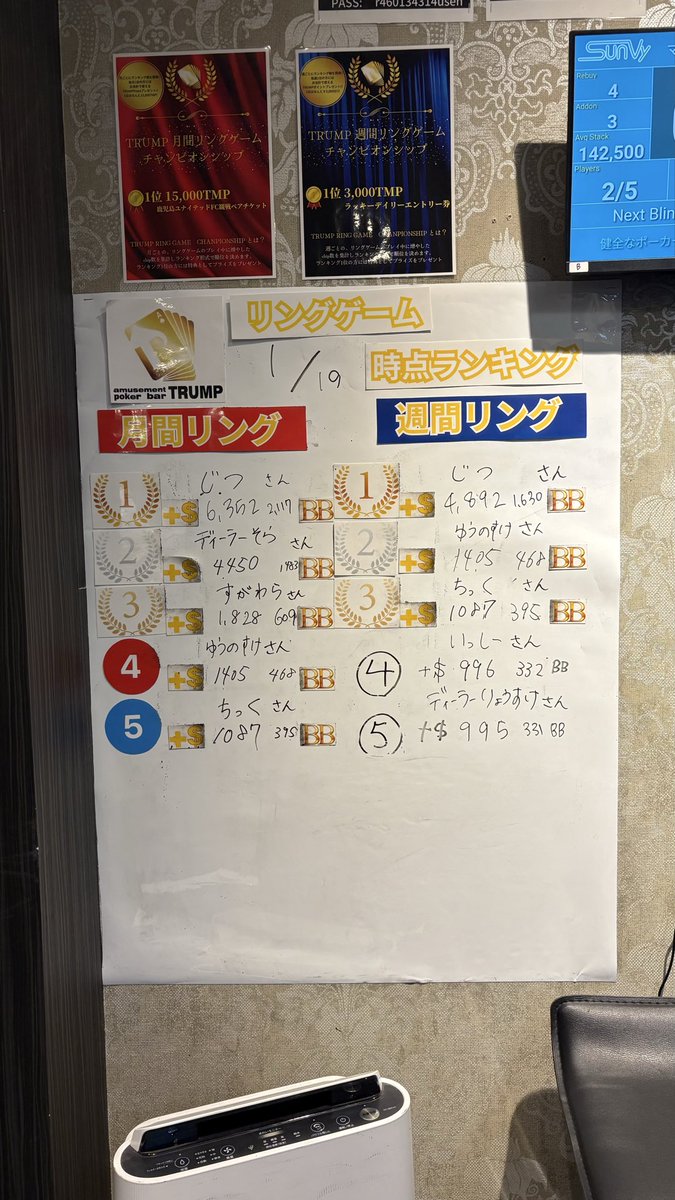 PASS: r460134314usen
TRUMP 月間リングゲーム
チャンピオンシップ
1位 15,000TMP
鹿児島ユナイテッドFC観戦ペアチケット
TRUMP RING GAME CHANPIONSHIP とは?
月ごとの、リングゲームのプレイ中に増やした
chip数を集計しランキング形式で順位を決めます。
ランキング1位の方には特典としてプライズをプレゼント
TRUMP 週間リングゲーム
チャンピオンシップ
1位 3,000TMP
ラッキーデイリーエントリー券
TRUMP RING GAME CHANPIONSHIP とは?
週ごとの、リングゲームのプレイ中に増やした
chip数を集計しランキング形式で順位を決めます。
ランキング1位の方には特典としてプライズをプレゼント
SunVy
Rebuy
4
Addon
3
Avg Stack
142,500
Players
2/5
Next Blin
健全なポーカ
amusement
poker bar TRUMP
リングゲーム
1/19 時点ランキング
月間リング
1 じつ さん
+$ 6,352 2,117 BB
2 ディーラーそら さん
+$ 4450 1,483 BB
3 すがわら さん
+$ 1,828 609 BB
4 ゆうのすけ さん
+$ 1405 468 BB
5 ちっく さん
+$ 1087 395 BB
週間リング
1 じつ さん
+$ 4,892 1,630 BB
2 ゆうのすけ さん
+$ 1405 468 BB
3 ちっく さん
+$ 1087 395 BB
4 いっしー さん
+$ 996 332 BB
5 ディーラーりょうすけ さん
+$ 995 331 BB